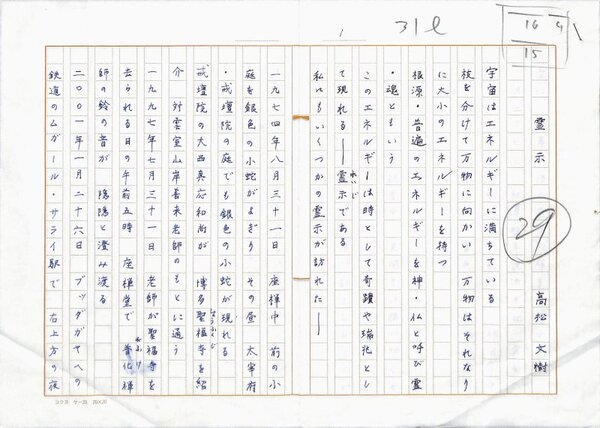 31ℓ
16 4
15
1
29
霊示
高松文樹
宇宙はエネルギーに満ちている
枝を分けて万物に向かい 万物はそれなり
に大小のエネルギーを持つ
根源・普遍のエネルギーを神・仏と呼び霊
・魂ともいう
このエネルギーは時として奇蹟や瑞兆とし
て現れる——霊示である
れいじ
私にもいくつかの霊示が訪れた——
一九七四年八月三十一日 座禅中 前の小
庭を銀色の小蛇がよぎり その昼 太宰府
・戒壇院の庭でも銀色の小蛇が現れる
戒壇院の大西真応和尚が 博多聖福寺を紹
しょうふくじ
介 対雲室山岸善来老師のもとに通う
一九九七年七月三十一日 老師が聖福寺を
去られる日の午前五時 座禅堂で 普化禅
ふけ
師の鈴の音が 隠隠と澄み渡る
二〇〇一年一月二十六日 ブッダガヤへの
鉄道のムガール・サライ駅で 右上方の夜
コクヨ ケー35 20×20